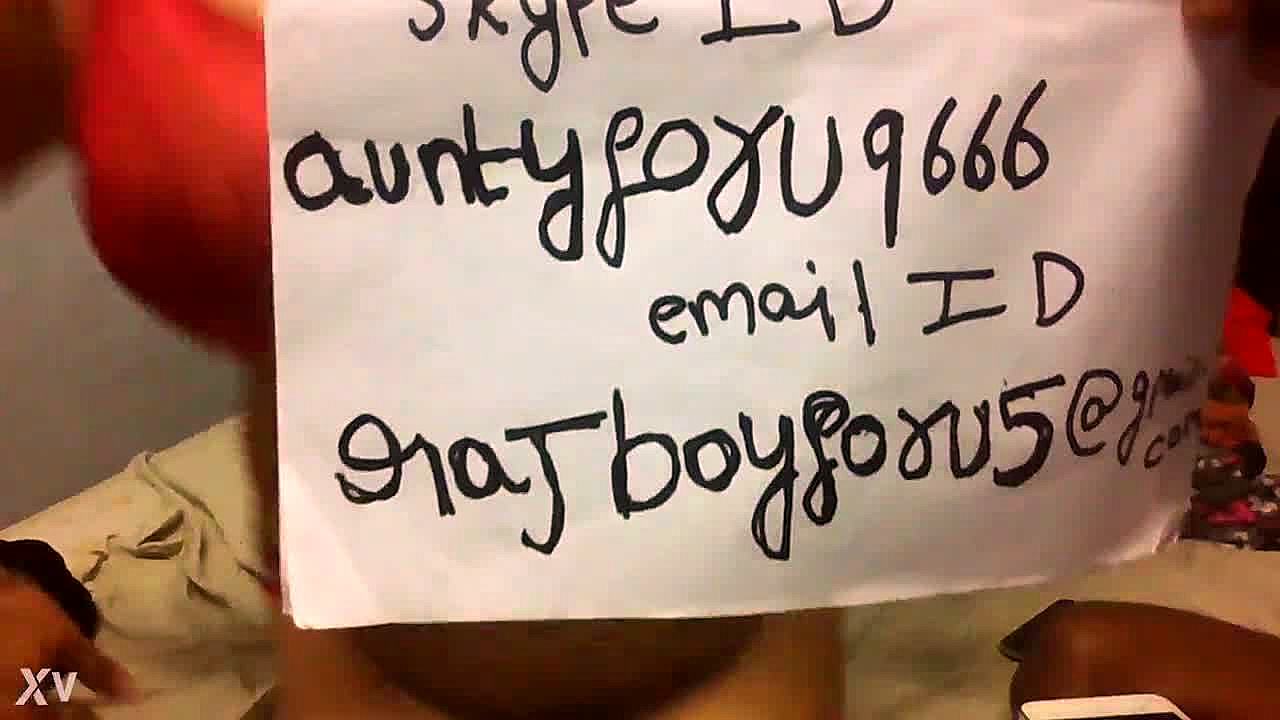 Skype ID
auntyforu9666
email ID
rajboyforu5@gmail.
com
XV